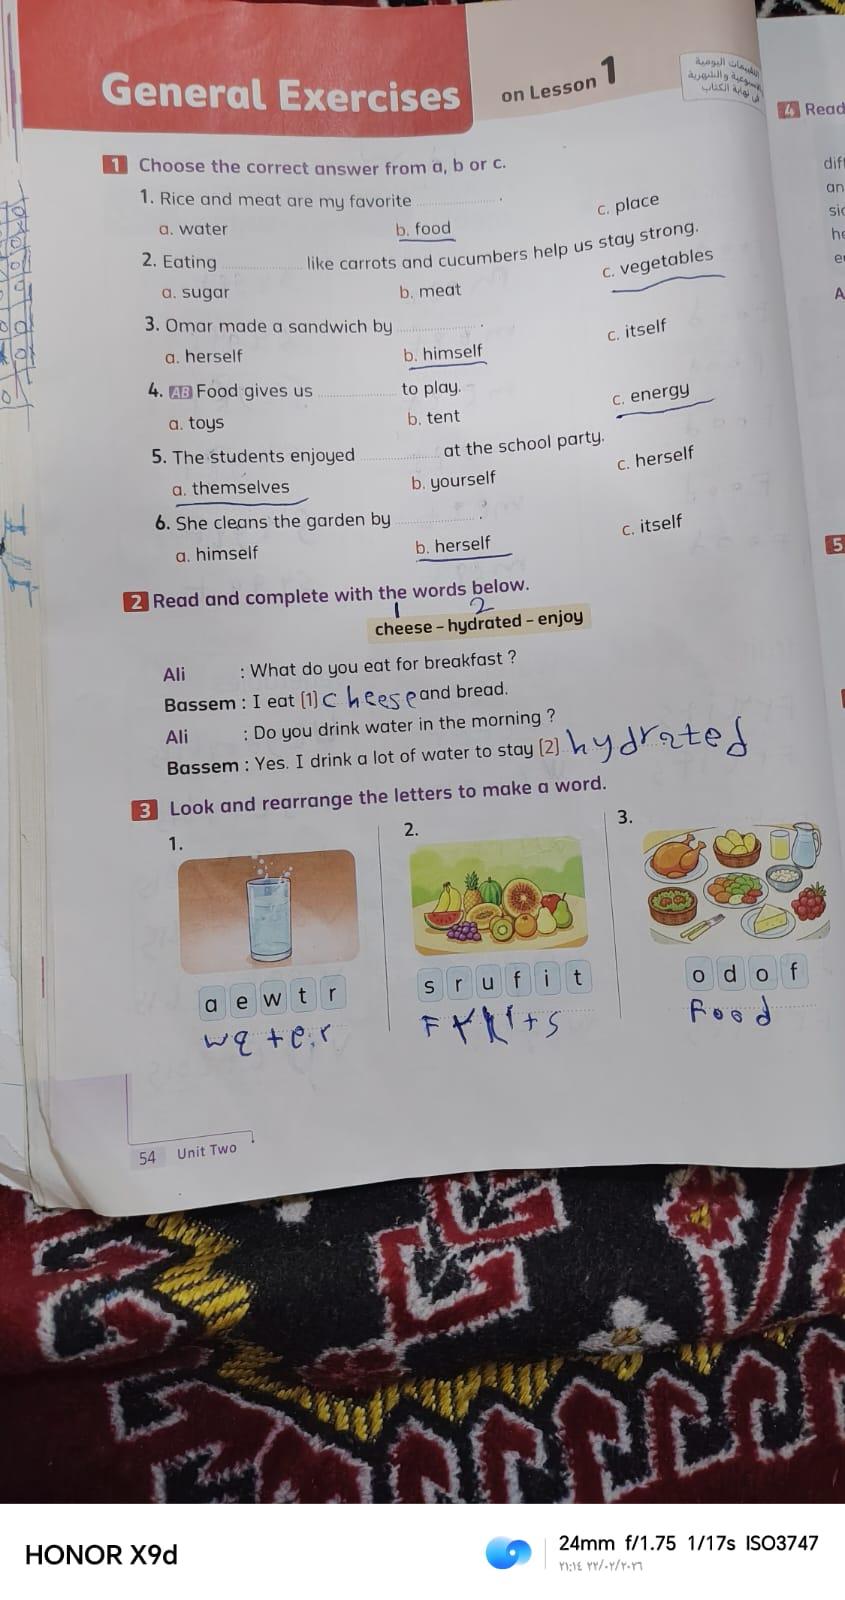 General Exercises on Lesson 1
التقييمات اليومية
والشهرية
فى نهاية الكتاب
4 Read
1 Choose the correct answer from a, b or c.
1. Rice and meat are my favorite .
a. water b. food c. place
2. Eating like carrots and cucumbers help us stay strong.
a. sugar b. meat c. vegetables
3. Omar made a sandwich by .
a. herself b. himself c. itself
4. AB Food gives us to play.
a. toys b. tent c. energy
5. The students enjoyed at the school party.
a. themselves b. yourself c. herself
6. She cleans the garden by .
a. himself b. herself c. itself
5
2 Read and complete with the words below.
1 2
cheese – hydrated – enjoy
Ali : What do you eat for breakfast ?
Bassem : I eat (1) cheese and bread.
Ali : Do you drink water in the morning ?
Bassem : Yes. I drink a lot of water to stay (2) hydrated
3 Look and rearrange the letters to make a word.
1. 2. 3.
a e w t r s r u f i t o d o f
water Fruits Food
54 Unit Two
HONOR X9d 24mm f/1.75 1/17s ISO3747
٢١:١٤ ٢٢/٠٢/٢٠٢٦